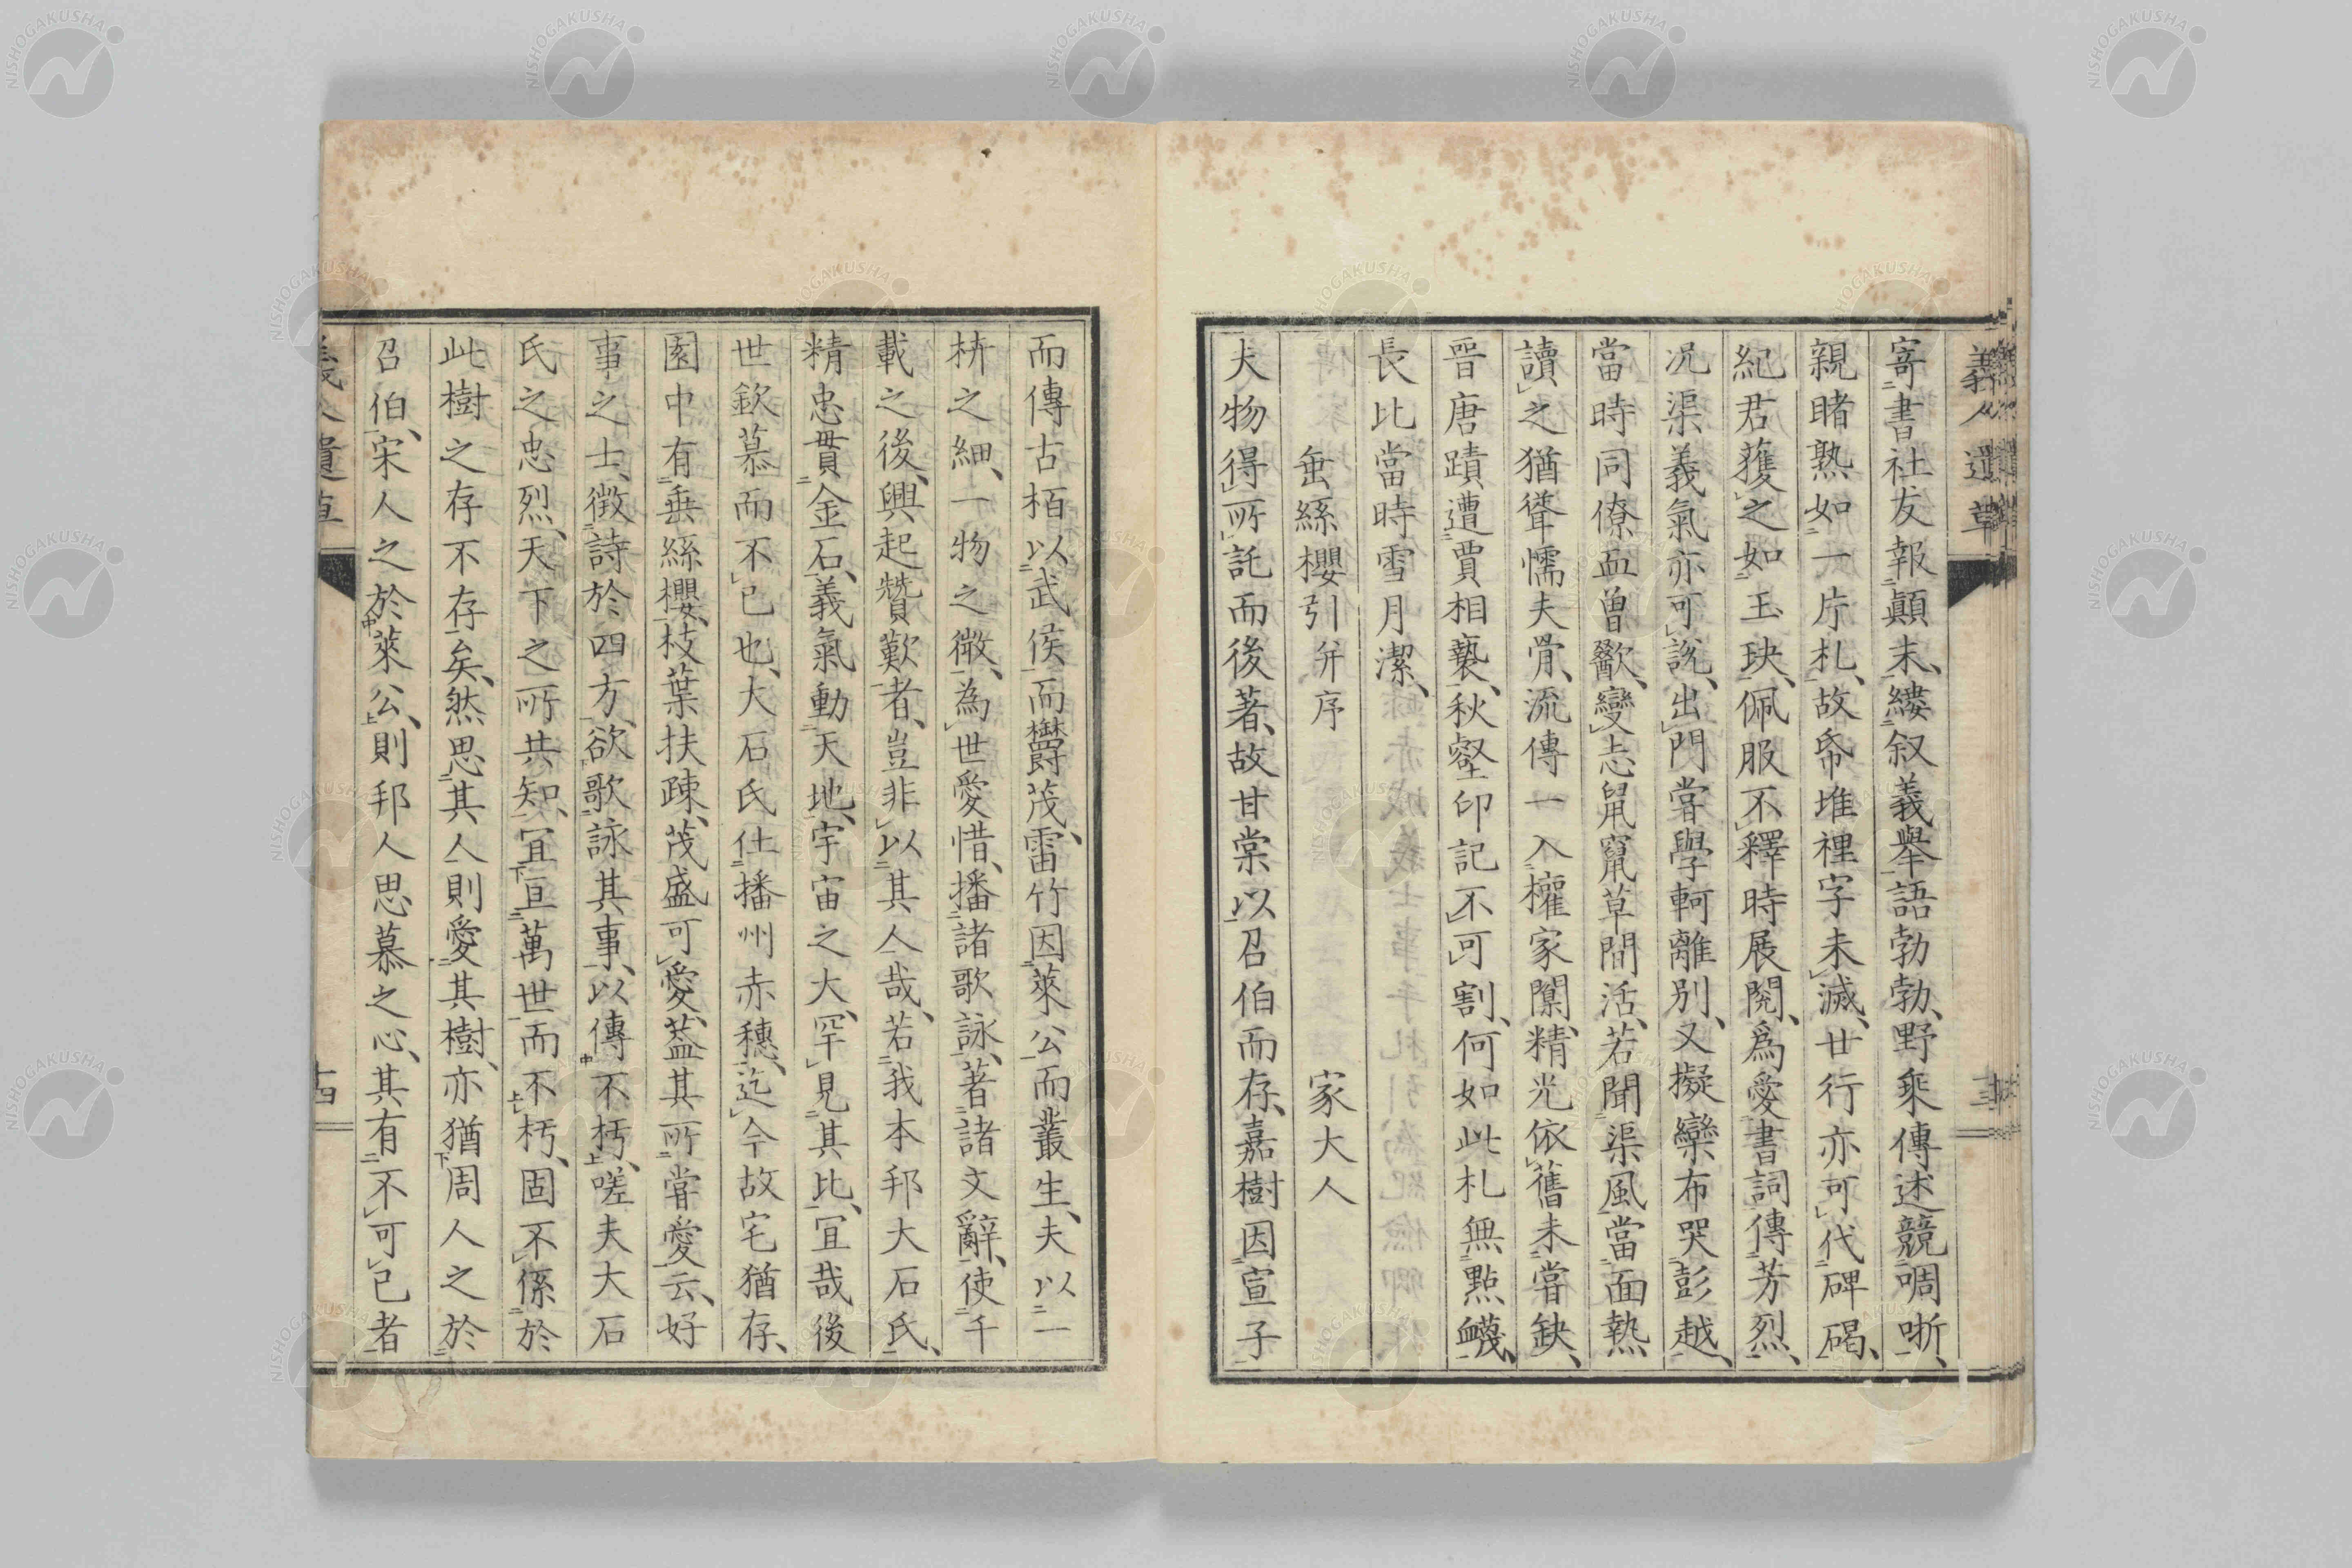 義人遺草
寄書社友報顛末、縷叙義擧語勃勃、野乘傳述競啁哳、
親睹熟如一片札、故帋堆裡字未滅、廿行亦可代碑碣、
紀君獲之如玉玦、佩服不釋時展閱、爲愛書詞傳芳烈、
况渠義氣亦可說、出門甞學軻離別、又擬欒布哭彭越、
當時同僚血曾歠、變忘鼠竄草間活、若聞渠風當面熱
讀之猶聳懦夫骨、流傳一入權家闃、精光依舊未甞缺、
晋唐蹟遭賈相褻、秋壑印記不可割、何如此札無點衊、
長比當時雪月潔、
垂絲櫻引并序 家大人
夫物得所託而後著、故甘棠以召伯而存、嘉樹因宣子
而傳古栢以武侯而欝茂、雷竹因萊公而叢生、夫以一
枿之細、一物之微、為世愛惜、播諸歌詠、著諸文辭、使千
載之後、興起贊歎者、豈非以其人哉、若我本邦大石氏、
精忠貫金石、義氣動天地、宇宙之大、罕見其比、冝哉後
世欽慕而不已也、大石氏仕播州赤穗、迄今故宅猶存、
園中有垂絲櫻、枝葉扶踈、茂盛可愛、葢其所甞愛云、好
事之士、徴詩於四方、欲歌詠其事、以傳不朽、嗟夫大石
氏之忠烈、天下之所共知、冝亘萬世而不朽、固不係於
此樹之存不存矣、然思其人則愛其樹、亦猶周人之於
召伯、宋人之於萊公、則邦人思慕之心、其有不可已者